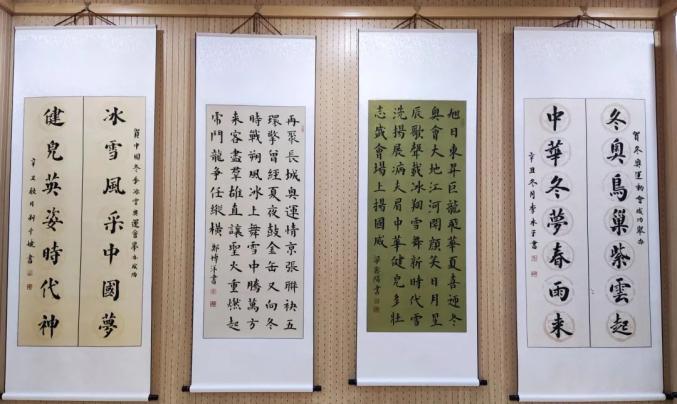 賀冬奧運動會成功舉办
冬奧鳥巢紫雲起
中華冬夢春雨來
辛丑冬月李永子書
旭日東昇巨龍飛華夏喜迎冬
奧會大地江河開顏笑日月星
辰歌聲載冰翔雪舞新時代雪
洗揚展病夫眉中華健兒多壯
志盛會場上揚國威
再聚長城奧運情京張聯袂五
環擎曾經夏夜鼓金缶又向冬
時戰朔風冰上舞雪中騰萬方
來客盡群雄直讓聖火重燃起
門龍爭任縱橫 鄭坤洋書
冰雪風采中國夢
賀中國冬季冰雪奧運會舉办成功
健兒英姿時代神
辛丑秋月 書